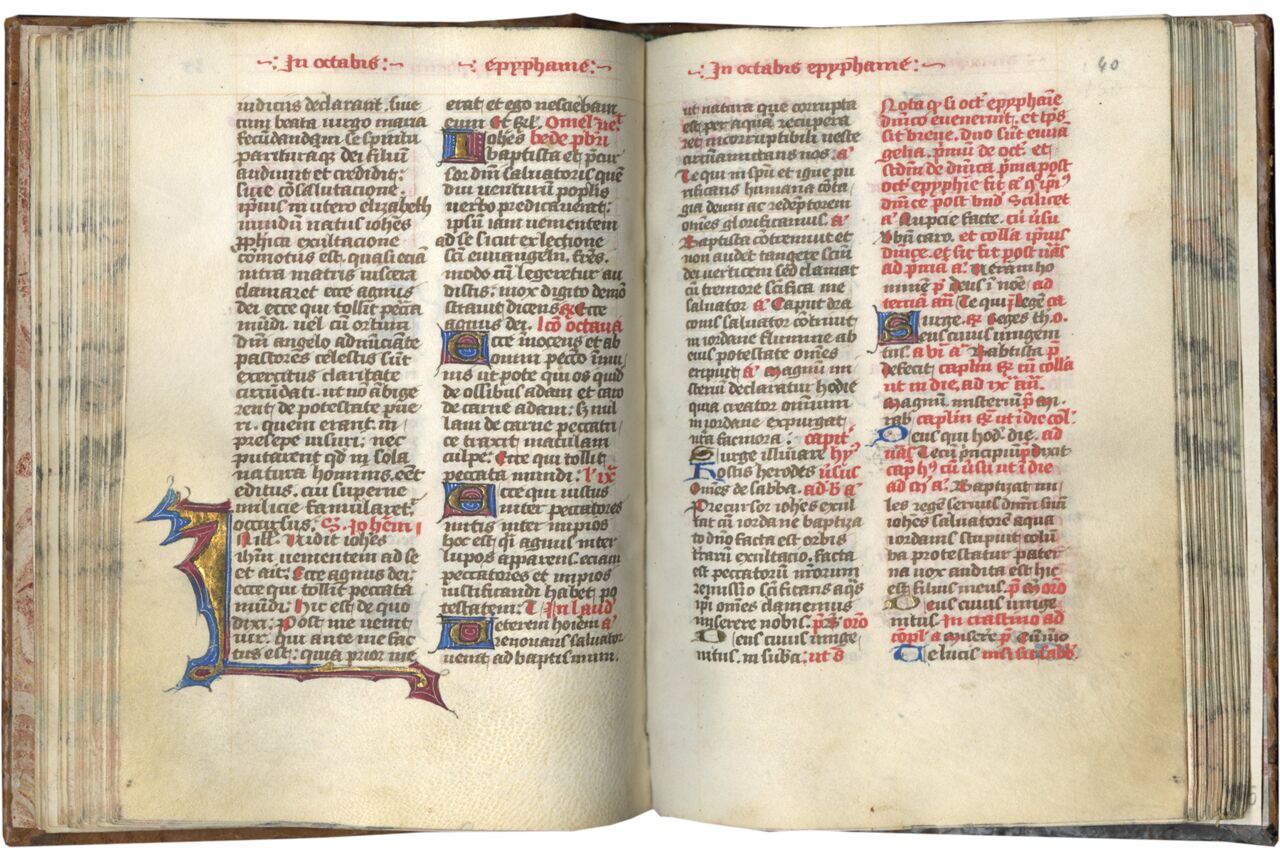 In octabis
epyphanie
iudicus declarant. siue
cum beata uirgo maria
fecūdandam se spiritu
parituraqȝ dei filiū
audiunt et credidit:
siue cōsalutacione.
ipsius in utero elizabeth
nundū natus iohēs
ꝓphica exultacione
comotus est. quasi eciā
intra matris uiscera
clamaret ecce agnus
dei ecce qui tollit pecc̄a
mūdi. uel cū ortum
dn̄i angelo adnūciāte
pastores celestis sūt
exercitus claritate
circūdati. ut nō ābige
rent de potestate pue
ri. quem erant. in
presepe uisuri: nec
putarent qd in sola
natura hominis. eēt
editus. cui superne
milicie famularet᷑
occursus. S. iohēm
Vidit iohēs
ihm̄ uenientem ad se
et ait: Ecce agnus dei:
ecce qui tollit peccata
mūdi: hic est de quo
dixi: Post me uenit
uir. qui ante me fac
tus est: quia prior me
erat et ego nesciebam
eum Et rl̄. Omel. uet
Iohēs bede pb̄ri
baptista et p̄cur
sor dn̄i saluatoris quē
diu uenturū popl̄is
uerbo predicauerat:
ipsum iam uenientem
ad se sicut ex lectione
sc̄i euuangelii. frēs.
modo cū legeretur au
distis: mox digito demō
strauit dicens Ecce
agnus dei. lcō octaua
Ecce inocens et ab
omni pecc̄o īmu
nis ut pote qui os quid
de ossibus adam et caro
de carne adam: sȝ nul
lam de carne peccatri
ce traxit maculam
culpe: Ecce qui tollit
peccata mundi: l' ix
Ecce qui iustus
inter peccatores
mitis inter impios
hoc est q̄i agnus inter
lupos apparens. eciam
peccatores et impios
iustificandi habet po
testatem: In laud
Veterem hoīem a'
renouans saluator
uenit ad baptismum.
In octabis epyphanie
ut natura que corrupta
est per aquā recupera
ret incorruptibili ueste
circūamictans nos: a'
Te qui in spū et igne pu
rificans humana cōta
gia deum ac redēptorem
omēs glorificamus. a'
Baptista cōtremuit et
non audet tangere sc̄m
dei uerticem sed clamat
cū tremore sc̄ifica me
saluator a' Caput dra
conis saluator cōtriuit
in iordane flumine ab
eius potestate omēs
eripuit a' Magnum mi
sterium declaratur hodie
quia creator omnium
in iordane expurgat
nr̄a facinora: capit'
Surge illuiare hy'
Hostis herodes ūsus
Omēs de sabba. ad b' a'
Precursor iohēs exul
tat cū iordane baptiza
to dn̄o facta est orbis
trarū exultacio. facta
est peccatorū nr̄orum
remissio sc̄ificans aq̄s
ip̄i omēs clamemus
miserere nobis. p̄s oro
Deus cuius unige
nitus. in suba: ut s
Nota q si oct' epyphaīe
dn̄ico euenerint. et tp̄s
sit breue. duo sūt euua
gelia. p̄miū de oct. et
scd̄m de dn̄ica p̄ma post
oct' epyphīe fit a' q ip̄i'
dn̄ice post bnd Scilicet
a' Nupcie facte. cū ūsu
Vbū caro. et colla ip̄ius
dn̄ice. et sic fit post nās
ad p̄mā a: Veterā ho
minē p' Deus i noē ad
terciā añ Te qui p' legē ca
Surge. Reges th. O.
Deus cuius unigeni
tus. a vi a' Baptista p'
Defecit. caplm et cū colla
ut in die. ad ix' añ.
Magnū misteriū p' an.
rab' caplm ut i die col'
Deus qui hod. die. ad
nās Tecū p̄ncipiū Dixit
cap h' cū ūsu ut i die
ad m a' Baptizat mi
les regē seruus dn̄m suū
iohēs saluatorē aqua
iordanis stupuit colū
ba protestatur pater
na uox audita est hic
est filius meus. p' m oro
Deus cuius unige
nitus. In crastino ad
cōpl' a miserē p' Cū īuo
Te lucis
40